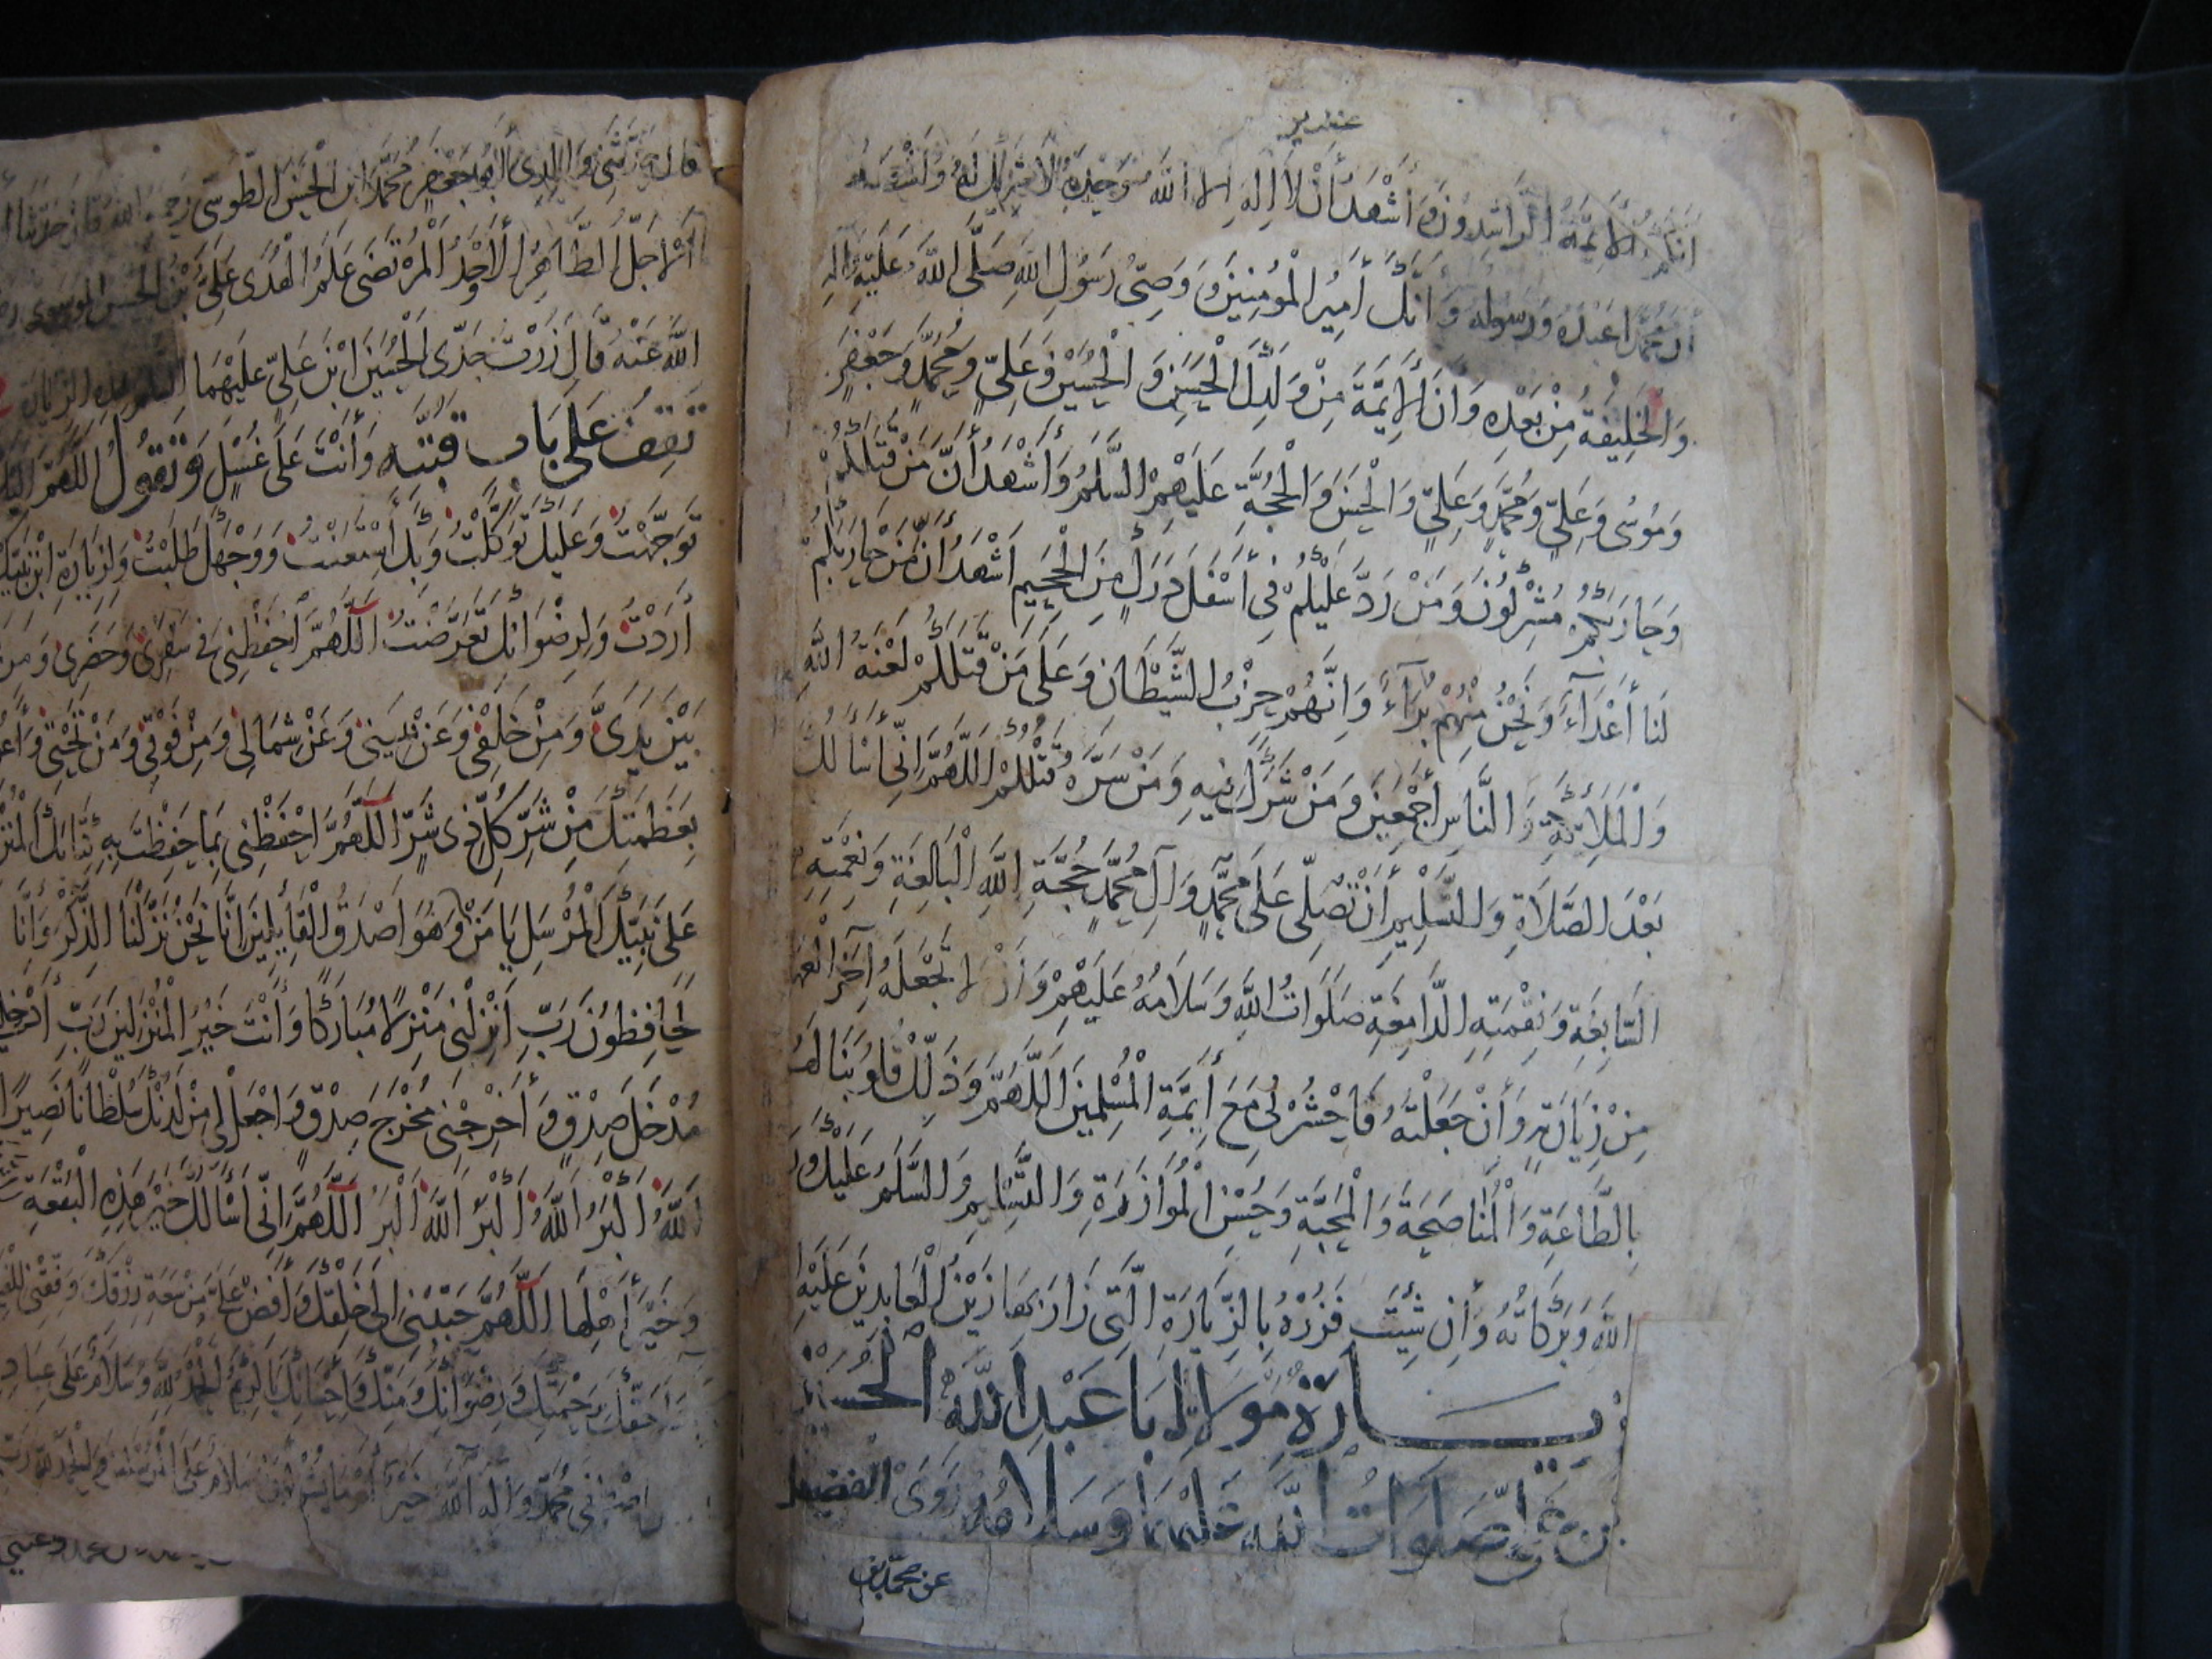 عشرين
انكم الأئمة الراشدون وأَشْهَدُ أَنْ لَا إِلَهَ إِلَّا اللَّهُ وَحْدَهُ لَا شَرِيكَ لَهُ وَأَشْهَدُ
أن محمدا عبده ورسوله وَأَنَّكَ أَمِيرُ الْمُؤْمِنِينَ وَوَصِيُّ رَسُولِ اللَّهِ صَلَّى اللَّهُ عَلَيْهِ وَآلِهِ
وَالْخَلِيفَةُ مِنْ بَعْدِهِ وَأَنَّ الْأَئِمَّةَ مِنْ وَلَدِكَ الْحَسَنِ وَالْحُسَيْنِ وَعَلِيٍّ وَمُحَمَّدٍ وَجَعْفَرٍ
وَمُوسَى وَعَلِيٍّ وَمُحَمَّدٍ وَعَلِيٍّ وَالْحَسَنِ وَالْحُجَّةِ عَلَيْهِمُ السَّلَمُ وَأَشْهَدُ أَنَّ مَنْ قَتَلَكُمْ
وَحَارَبَكُمْ مُشْرِكُونَ وَمَنْ رَدَّ عَلَيْكُمْ فِي أَسْفَلِ دَرَكٍ مِنَ الْجَحِيمِ أَشْهَدُ أَنَّ مَنْ حَارَبَكُمْ
لَنَا أَعْدَاءٌ وَنَحْنُ مِنْهُمْ بُرَآءُ وَإِنَّهُمْ حِزْبُ الشَّيْطَانِ وَعَلَى مَنْ قَتَلَكُمْ لَعْنَةُ اللَّهِ
وَالْمَلَائِكَةِ وَالنَّاسِ أَجْمَعِينَ وَمَنْ شَرَكَ فِيهِ وَمَنْ سَرَّهُ قَتْلُكُمْ اللَّهُمَّ إِنِّي أَسْأَلُكَ
بَعْدَ الصَّلَاةِ وَالتَّسْلِيمِ أَنْ تُصَلِّيَ عَلَى مُحَمَّدٍ وَآلِ مُحَمَّدٍ حُجَّةِ اللَّهِ الْبَالِغَةِ وَنِعْمَتِهِ
السَّابِغَةِ وَنِقْمَتِهِ الدَّامِغَةِ صَلَوَاتُ اللَّهِ وَسَلَامُهُ عَلَيْهِمْ وَأَنْ لَا تَجْعَلَهُ آخِرَ الْعَهْدِ
مِنْ زِيَارَتِهِ وَأَنْ جَعَلْتَهُ فَاحْشُرْنِي مَعَ أَئِمَّةِ الْمُسْلِمِينَ اللَّهُمَّ وَذَلِّلْ قُلُوبَنَا لَهُمْ
بِالطَّاعَةِ وَالْمُنَاصَحَةِ وَالْمَحَبَّةِ وَحُسْنِ الْمُوَازَرَةِ وَالتَّسْلِيمِ وَالسَّلَمُ عَلَيْكَ وَرَ
اللَّهِ وَبَرَكَاتُهُ وَأَنْ شِئْتَ فَزُرْهُ بِالزِّيَارَةِ الَّتِي زَارَ بِهَا زَيْنُ الْعَابِدِينَ عَلَيْهِ
زيَارَةُ مَوْلَايَ أَبَا عَبْدِ اللَّهِ الْحُسَيْن
بن علي صَلَوَاتُ اللَّهِ عَلَيْهِمَا وَسَلَامُهُ رَوَى الفضيل
عن محمد بن
قال حدثني وَالِدِي أَبُو جَعْفَرٍ مُحَمَّدُ ابْنُ الْحَسَنِ الطُّوسِيُّ رحمه الله قال حدثنا
الْأَجَلُّ الطَّاهِرُ الْأَوْحَدُ الْمُرْتَضَى عَلَمُ الْهُدَى عَلِيُّ بْنُ الْحُسَيْنِ الموسوي رضي
اللَّهُ عَنْهُ قَالَ زُرْتُ جَدِّيَ الْحُسَيْنَ ابْنَ عَلِيٍّ عَلَيْهِمَا السلم بهذه الزيارة
تَقِفُ عَلَى بَابِ قُبَّتِهِ وَأَنْتَ عَلَى غُسْلٍ وَتَقُولُ اللَّهُمَّ إِلَيْكَ
تَوَجَّهْتُ وَعَلَيْكَ تَوَكَّلْتُ وَبِكَ أَسْتَعَنْتُ وَوَجْهَكَ طَلَبْتُ وَلِزِيَارَةِ ابْنِ نَبِيِّكَ
أَرَدْتُ وَلِرِضْوَانِكَ تَعَرَّضْتُ اللَّهُمَّ احْفَظْنِي فِي سَفَرِي وَحَضَرِي وَمِنْ
بَيْنِ يَدَيَّ وَمِنْ خَلْفِي وَعَنْ يَمِينِي وَعَنْ شِمَالِي وَمِنْ فَوْقِي وَمِنْ تَحْتِي وَأَعُوذُ
بِعَظَمَتِكَ مِنْ شَرِّ كُلِّ ذِي شَرٍّ اللَّهُمَّ احْفَظْنِي بِمَا حَفِظْتَ بِهِ كِتَابَكَ الْمُنْزَلَ
عَلَى نَبِيِّكَ الْمُرْسَلِ يَا مَنْ وَهُوَ أَصْدَقُ الْقَائِلِينَ إِنَّا نَحْنُ نَزَّلْنَا الذِّكْرَ وَإِنَّا
لَهُ لَحَافِظُونَ رَبِّ أَنْزِلْنِي مُنْزَلًا مُبَارَكًا وَأَنْتَ خَيْرُ الْمُنْزِلِينَ رَبِّ أَدْخِلْنِي
مُدْخَلَ صِدْقٍ وَأَخْرِجْنِي مُخْرَجَ صِدْقٍ وَاجْعَلْ لِي مِنْ لَدُنْكَ سُلْطَانًا نَصِيرًا
اللَّهُ أَكْبَرُ اللَّهُ أَكْبَرُ اللَّهُ أَكْبَرُ اللَّهُمَّ إِنِّي أَسْأَلُكَ خَيْرَ هَذِهِ الْبُقْعَةِ
وَخَيْرَ أَهْلِهَا اللَّهُمَّ حَبِّبْنِي إِلَى خَلْقِكَ وَأَفِضْ عَلَيَّ مِنْ سَعَةِ رِزْقِكَ وَوَفِّقْنِي
بِرَحْمَتِكَ وَرِضْوَانِكَ وَمَنِّكَ وَإِحْسَانِكَ يَا كَرِيمُ الْحَمْدُ لِلَّهِ وَسَلَامٌ عَلَى عِبَادِهِ
اصطفى مُحَمَّدٍ وَآلِهِ اللَّهُ خَيْرٌ أَمَّا يُشْرِكُونَ وَسَلَامٌ عَلَى الْمُرْسَلِينَ وَالْحَمْدُ لِلَّهِ رَبِّ